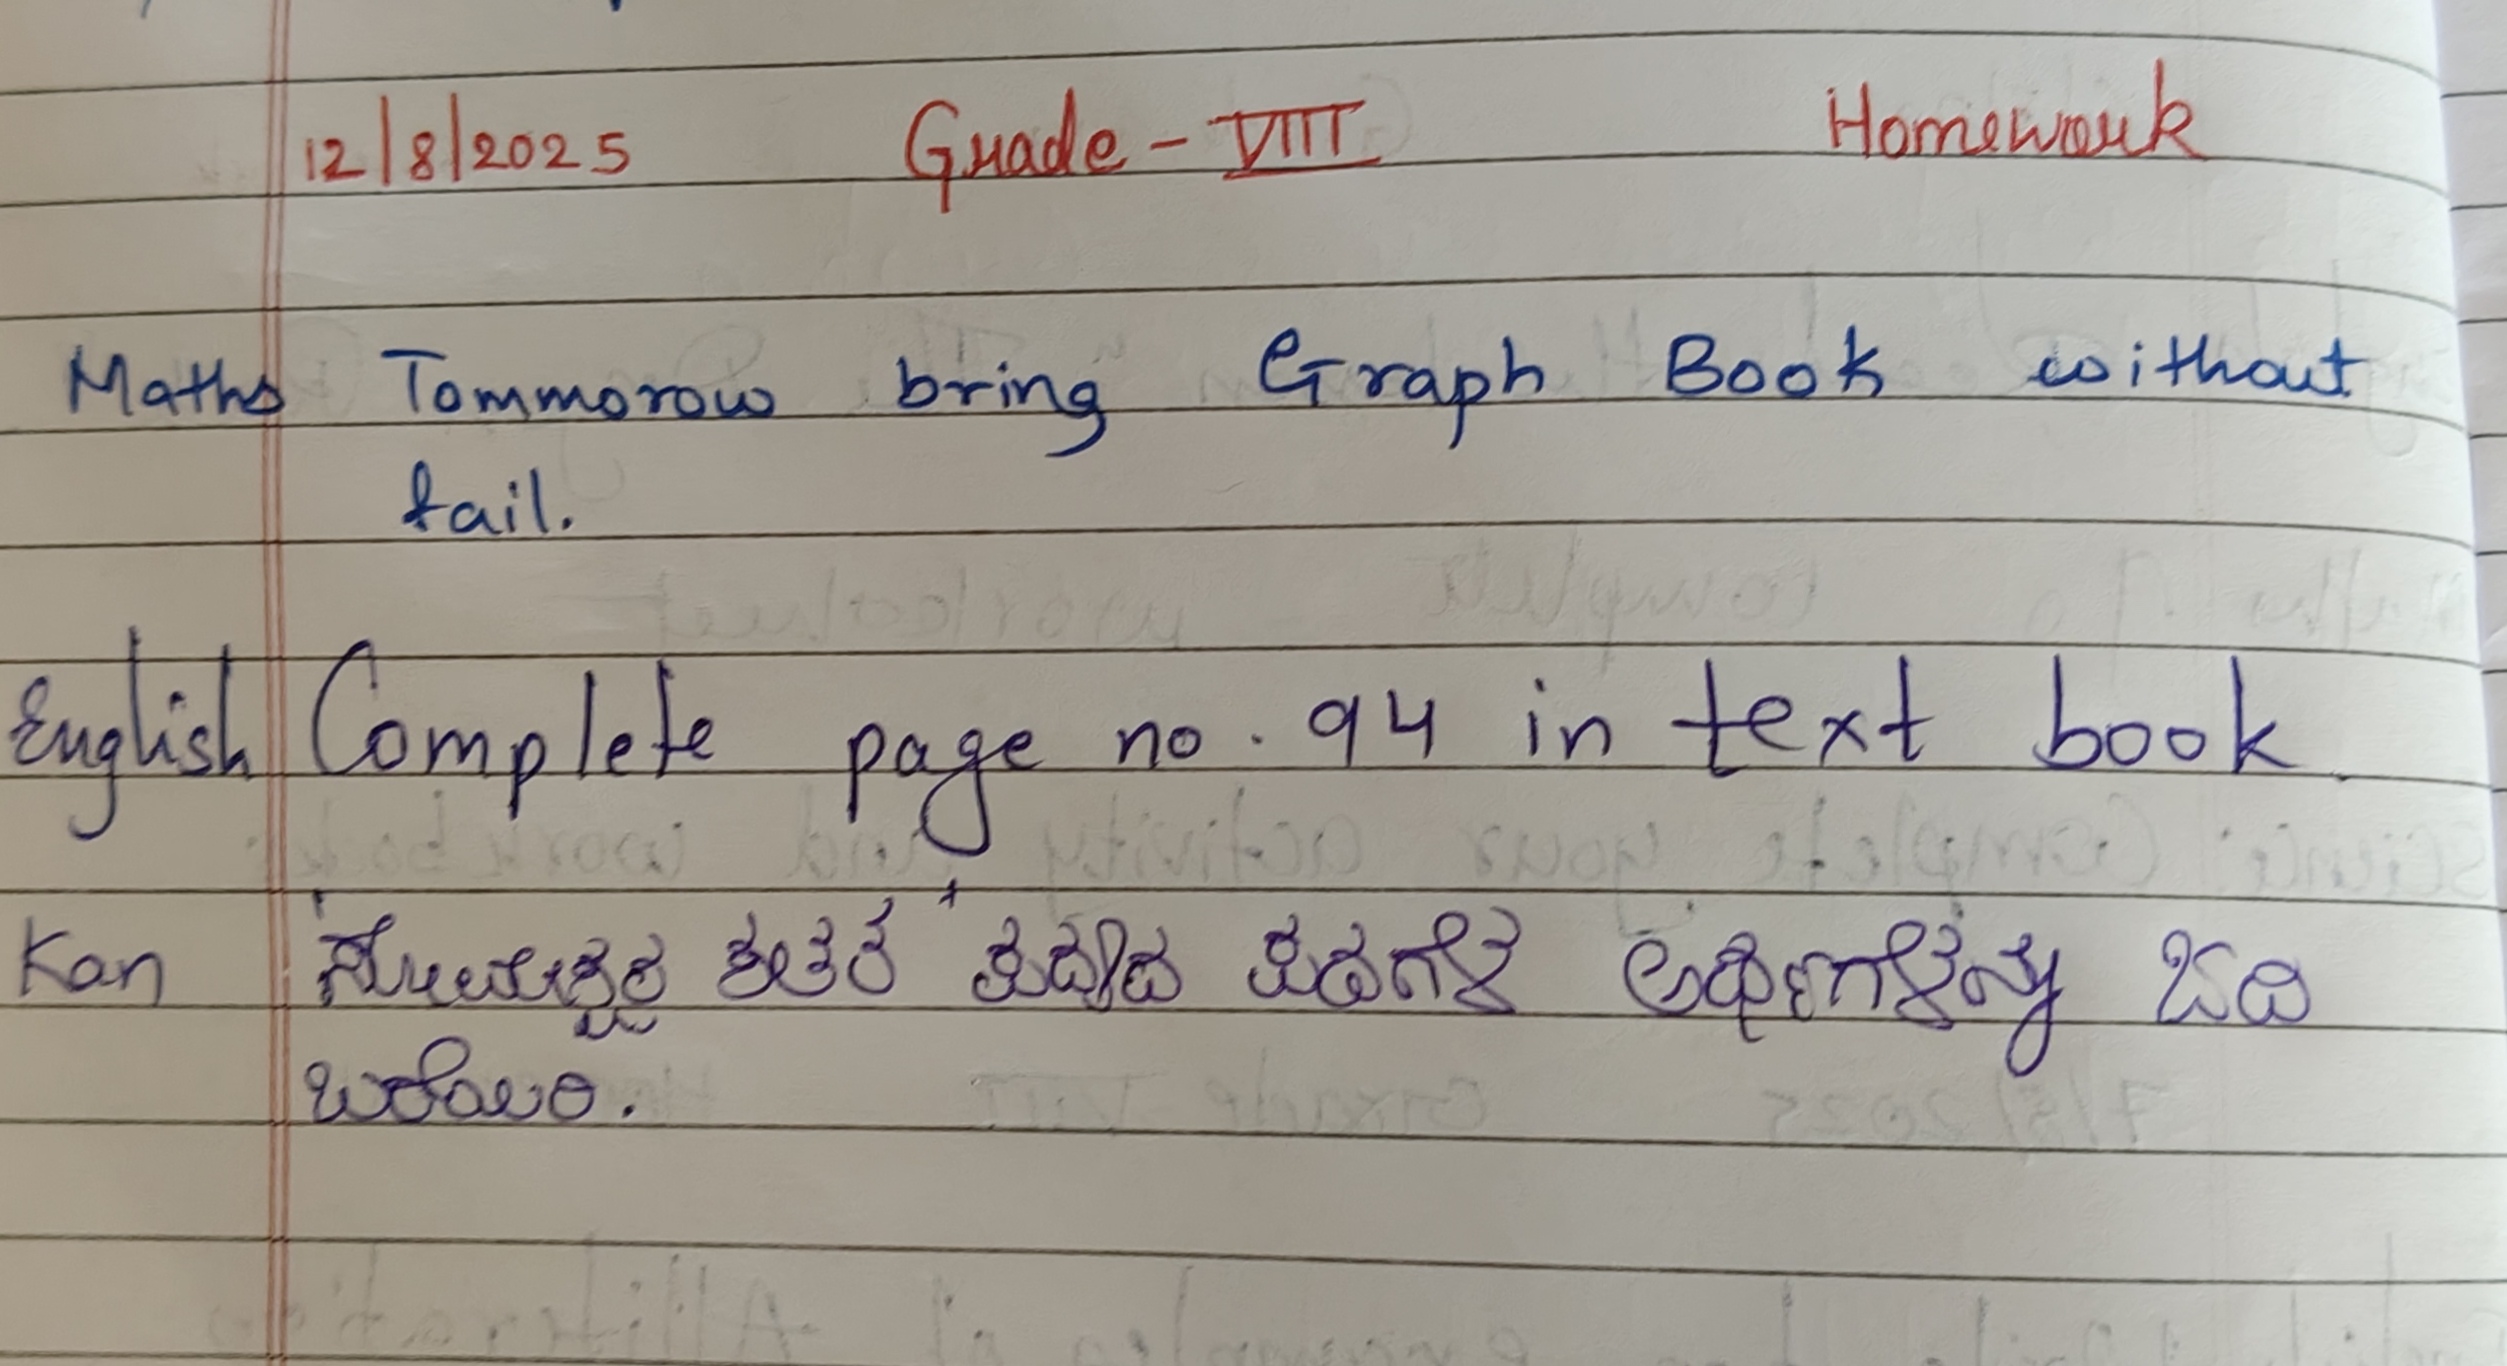 12/8/2025 Grade - VIII Homework
Maths Tommorow bring Graph Book without
fail.
English Complete page no. 94 in text book
Kan ಸೋಮೇಶ್ವರ ಶತಕ + ಪದ್ಯದ ಪದಗಳ ಅರ್ಥಗಳನ್ನು ಓದಿ
ಬರೆಯಿರಿ.